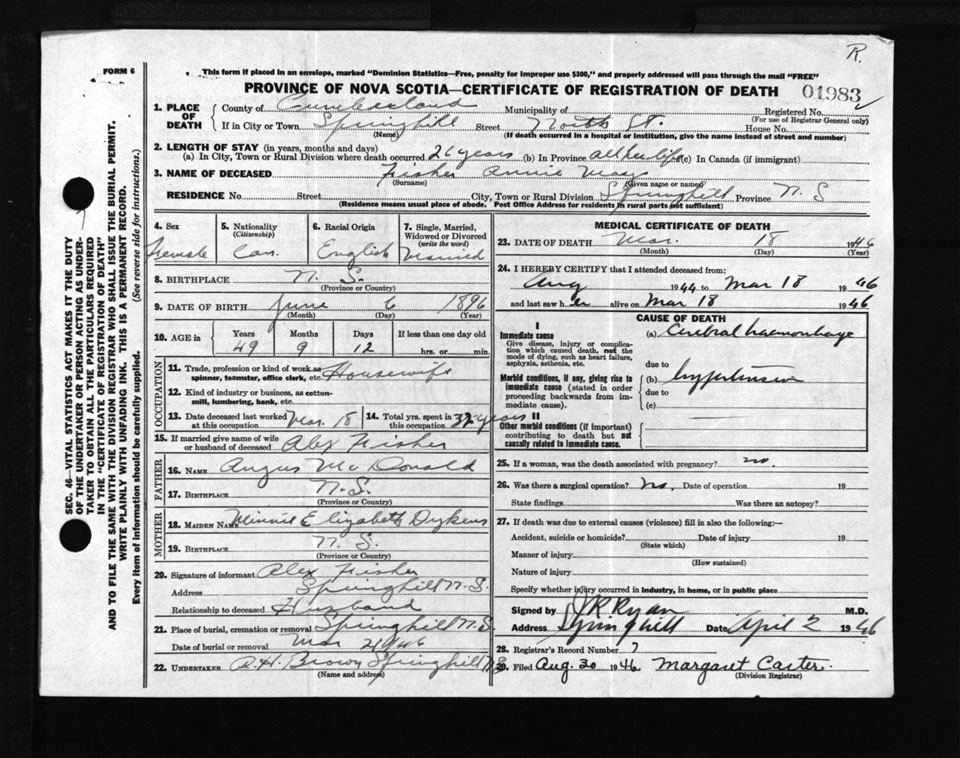 R.
FORM 6
This form if placed in an envelope, marked "Dominion Statistics—Free, penalty for improper use $300," and properly addressed will pass through the mail "FREE"
PROVINCE OF NOVA SCOTIA—CERTIFICATE OF REGISTRATION OF DEATH
01983
SEC. 46—VITAL STATISTICS ACT MAKES IT THE DUTY
OF THE UNDERTAKER OR PERSON ACTING AS UNDER-
TAKER TO OBTAIN ALL THE PARTICULARS REQUIRED
IN THE "CERTIFICATE OF REGISTRATION OF DEATH"
AND TO FILE THE SAME WITH THE DIVISION REGISTRAR WHO SHALL ISSUE THE BURIAL PERMIT.
WRITE PLAINLY WITH UNFADING INK. THIS IS A PERMANENT RECORD.
Every item of information should be carefully supplied. (See reverse side for instructions.)
1. PLACE OF DEATH
County of Cumberland Municipality of Registered No.
(For use of Registrar General only)
If in City or Town Springhill Street North St. House No.
(Name) (If death occurred in a hospital or institution, give the name instead of street and number)
2. LENGTH OF STAY (in years, months and days)
(a) In City, Town or Rural Division where death occurred 26 years (b) In Province all her life (c) In Canada (if immigrant)
3. NAME OF DECEASED Fisher Annie May
(Surname) (Given name or names)
RESIDENCE No. Street City, Town or Rural Division Springhill Province N.S
(Residence means usual place of abode. Post Office Address for residents in rural parts not sufficient)
4. Sex Female
5. Nationality (Citizenship) Can.
6. Racial Origin English
7. Single, Married, Widowed or Divorced (write the word) Married
8. BIRTHPLACE N.S.
(Province or Country)
9. DATE OF BIRTH June 6 1896
(Month) (Day) (Year)
10. AGE in Years 49 Months 9 Days 12 If less than one day old hrs. or min.
OCCUPATION
11. Trade, profession or kind of work as spinner, teamster, office clerk, etc. Housewife
12. Kind of industry or business, as cotton-mill, lumbering, bank, etc.
13. Date deceased last worked at this occupation Mar. 18
14. Total yrs. spent in this occupation 32 years
15. If married give name of wife or husband of deceased Alex Fisher
FATHER
16. NAME Angus McDonald
17. BIRTHPLACE N.S.
(Province or Country)
MOTHER
18. MAIDEN NAME Minnie Elizabeth Dykens
19. BIRTHPLACE N.S.
(Province or Country)
20. Signature of informant Alex Fisher
Address Springhill N.S.
Relationship to deceased Husband
21. Place of burial, cremation or removal Springhill N.S.
Date of burial or removal Mar 21 1946
22. UNDERTAKER A.H. Brown Springhill N.S
(Name and address)
MEDICAL CERTIFICATE OF DEATH
23. DATE OF DEATH Mar. 18 1946
(Month) (Day) (Year)
24. I HEREBY CERTIFY that I attended deceased from:
Aug 1944 to Mar 18 1946
and last saw her alive on Mar 18 1946
CAUSE OF DEATH
I
Immediate cause
Give disease, injury or complication which caused death, not the mode of dying, such as heart failure, asphyxia, asthenia, etc.
(a) Cerebral haemorrhage
due to
Morbid conditions, if any, giving rise to immediate cause (stated in order proceeding backwards from immediate cause).
(b) hypertension
due to
(c)
II
Other morbid conditions (if important) contributing to death but not causally related to immediate cause.
25. If a woman, was the death associated with pregnancy? no.
26. Was there a surgical operation? No. Date of operation 19
State findings Was there an autopsy?
27. If death was due to external causes (violence) fill in also the following:—
Accident, suicide or homicide? Date of injury 19
(State which)
Manner of injury
(How sustained)
Nature of injury
Specify whether injury occurred in industry, in home, or in public place
Signed by J R Ryan M.D.
Address Springhill Date April 2 1946
28. Registrar's Record Number 7
29. Filed Aug. 20 1946 Margaret Carter.
(Division Registrar)